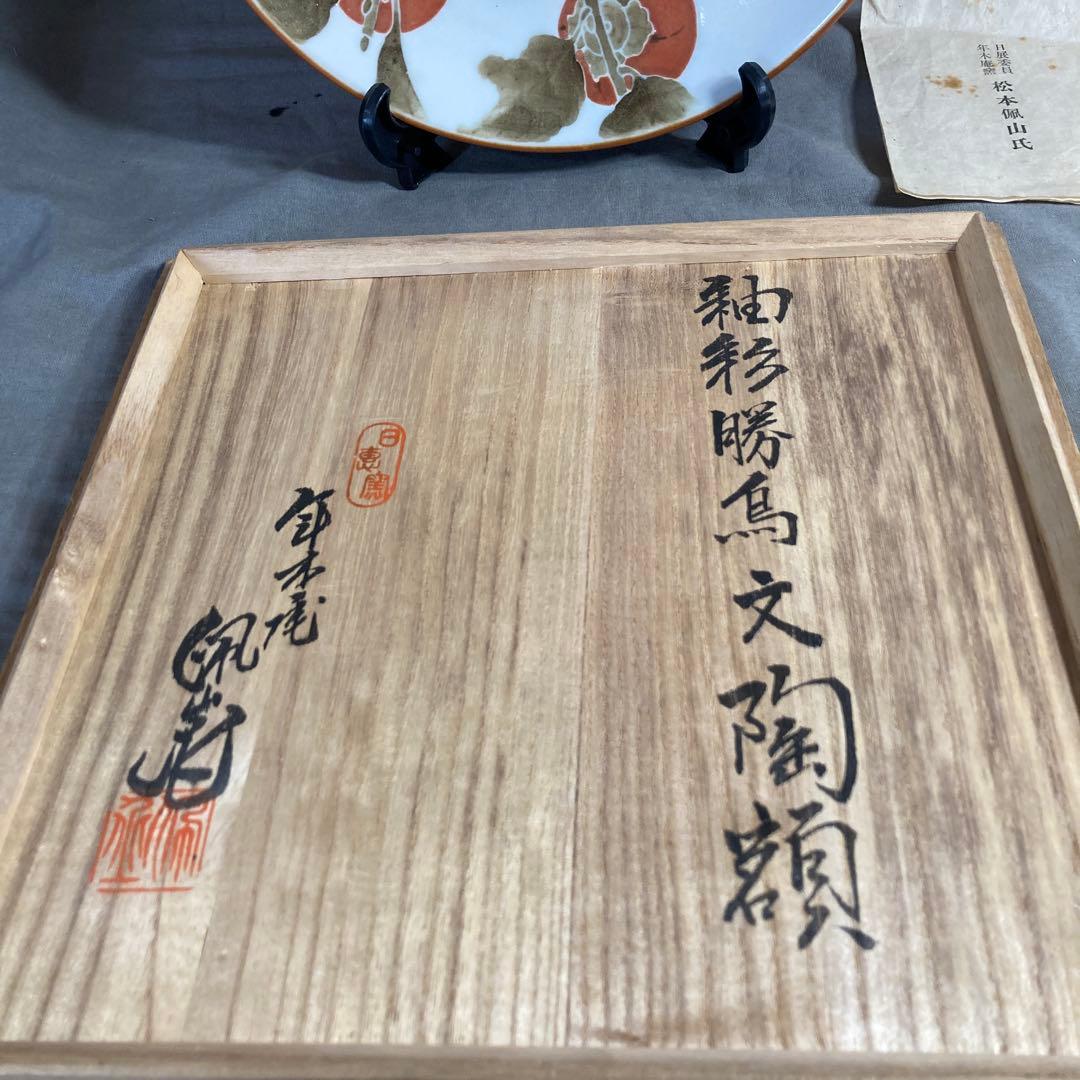 日展委員
年木庵窯 松本佩山氏
釉彩勝鳥文陶額
日恵窯
年木庵
佩山